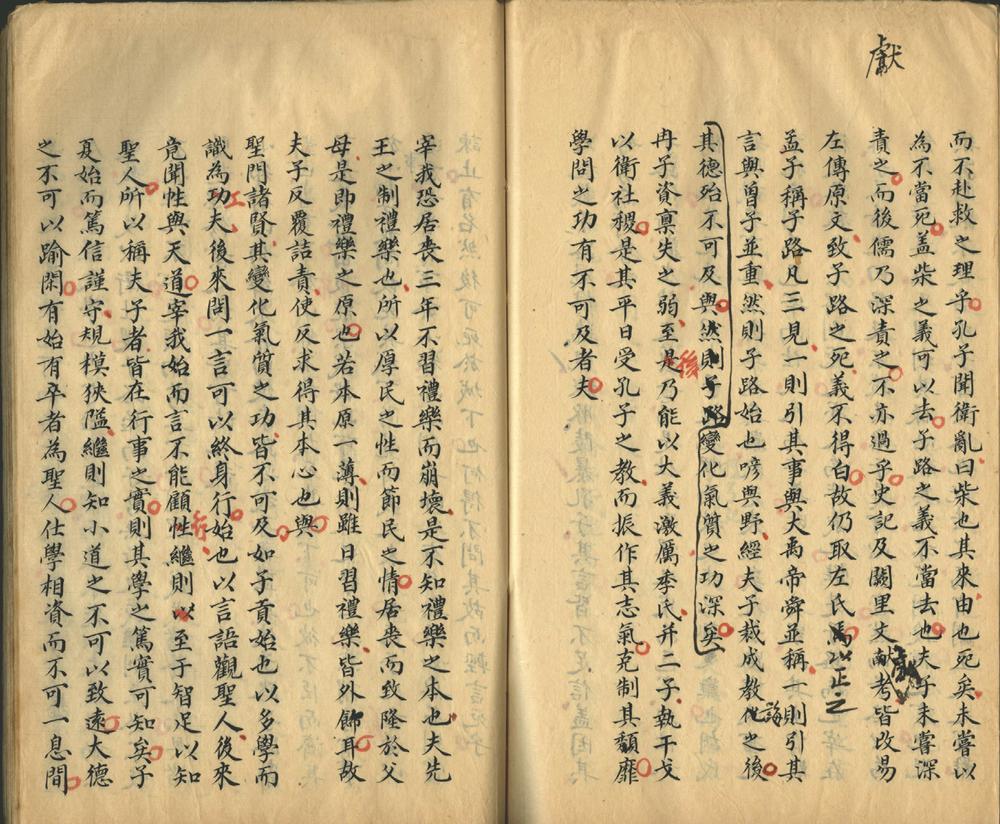 獻
而不赴救之理乎孔子聞衛亂曰柴也其來由也死矣未嘗以
為不當死蓋柴之義可以去子路之義不當去也夫子未嘗深
責之而後儒乃深責之不亦過乎史記及闕里文獻考皆改易
左傳原文致子路之死義不得白故仍取左氏馬以正之
孟子稱子路凡三見一則引其事與大禹帝舜並稱一則引其
言與曾子並重然則子路始也喭與野經夫子裁成教誨之後
其德殆不可及與然則子路變化氣質之功深矣
後
冉子資稟失之弱至是乃能以大義激厲季氏并二子執干戈
以衛社稷是其平日受孔子之教而振作其志氣克制其頹靡
學問之功有不可及者夫
宰我恐居喪三年不習禮樂而崩壞是不知禮樂之本也夫先
王之制禮樂也所以厚民之性而節民之情居喪而致隆於父
母是即禮樂之原也若本原一薄則雖日習禮樂皆外飾耳故
夫子反覆詰責使反求得其本心也與
聖門諸賢其變化氣質之功皆不可及如子貢始也以多學而
識為功夫後來問一言可以終身行始也以言語觀聖人後來
竟聞性與天道宰我始而言不能顧性繼則以至于智足以知
聖人所以稱夫子者皆在行事之實則其學之篤實可知矣子
夏始而篤信謹守規模狹隘繼則知小道之不可以致遠大德
之不可以踰閑有始有卒者為聖人仕學相資而不可一息間